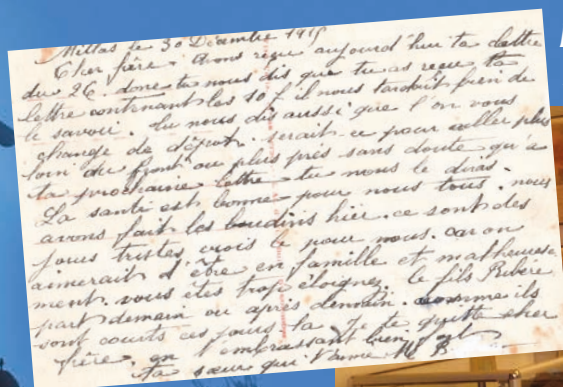 Millas le 30 Décembre 1915
Cher frère. Avons reçu aujourd'hui ta lettre
du 26. donc tu nous dis que tu as reçu ta
lettre contenant les 10 f il nous tardait bien de
le savoir. tu nous dis aussi que l'on vous
change de dépot. serait-ce pour aller plus
loin du front ou plus près sans doute qu'a
ta prochaine lettre tu nous le diras.
La santé est bonne pour nous tous. nous
avons fait les boudins hier. ce sont des
jours tristes, crois le pour nous. car on
aimerait d'être en famille et malheureuse
ment. vous êtes trop éloignez. le fils Ribère
part demain ou après demain. comme ils
sont courts ces jours la. Je te quitte cher
frère. en t'embrassant bien fort
ta sœur qui t'aime